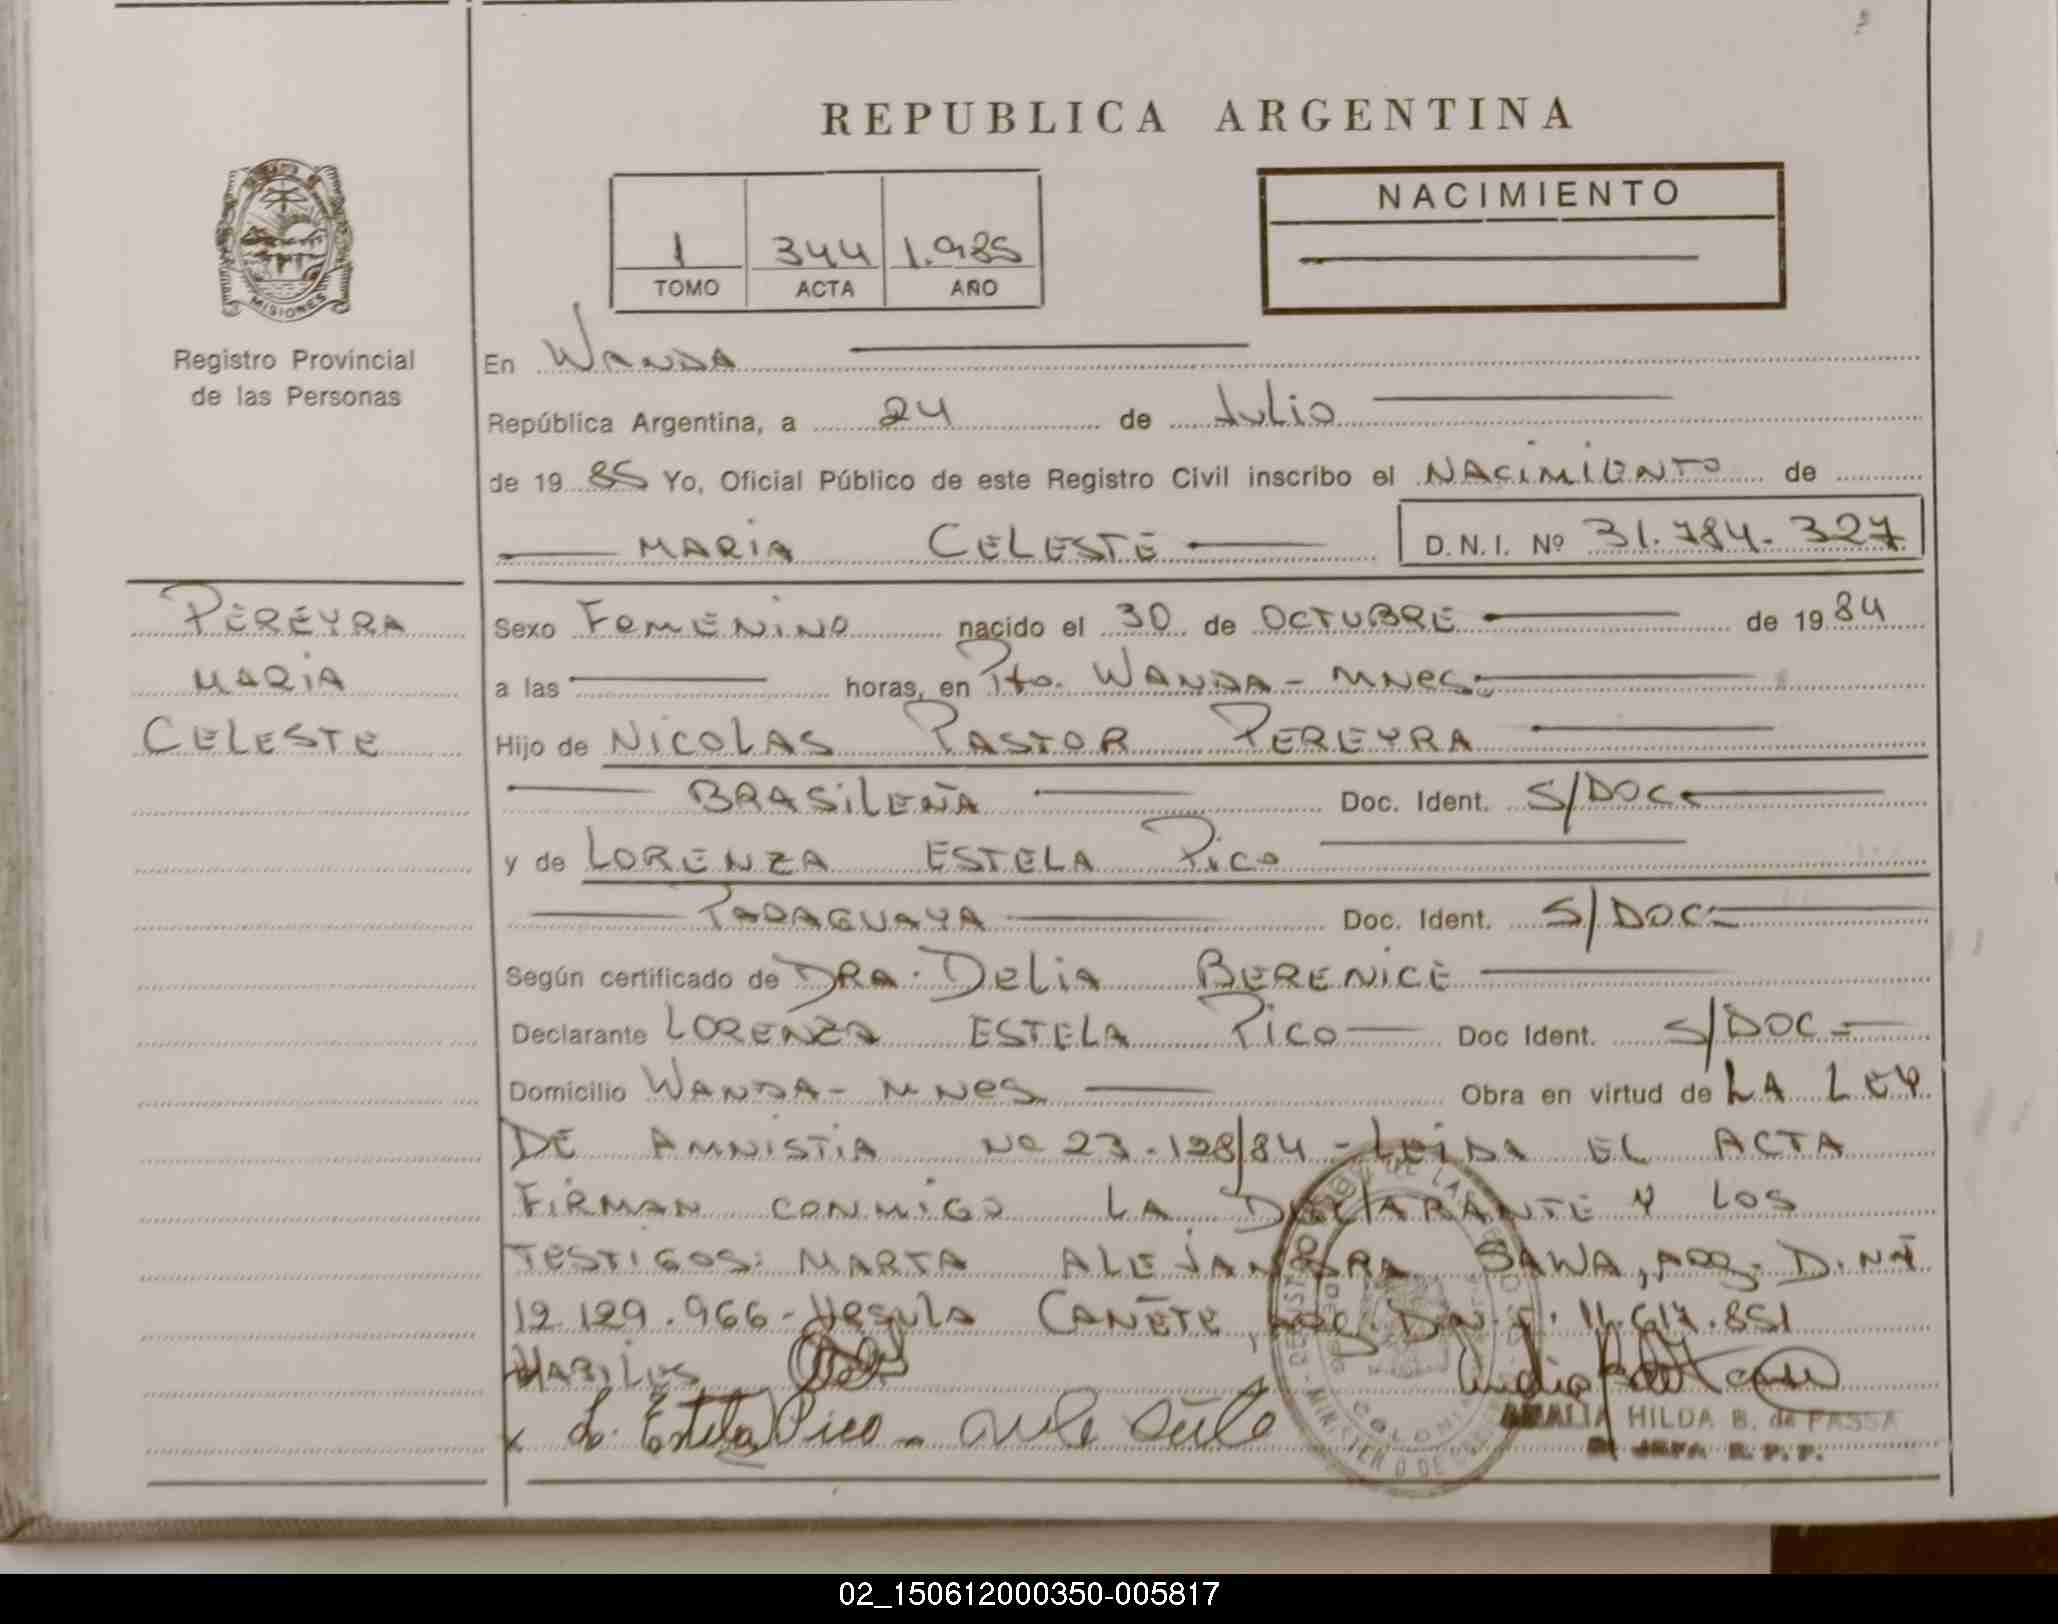 REPUBLICA ARGENTINA
1 344 1.985
TOMO ACTA AÑO
NACIMIENTO
MISIONES
Registro Provincial
de las Personas
En WANDA
República Argentina, a 24 de Julio
de 19 85 Yo, Oficial Público de este Registro Civil inscribo el NACIMIENTO de
MARIA CELESTE D.N.I. Nº 31.784.327
PEREYRA
MARIA
CELESTE
Sexo FEMENINO nacido el 30 de OCTUBRE de 19 84
a las horas, en Pto. WANDA - MNES.
Hijo de NICOLAS PASTOR PEREYRA
BRASILEÑA Doc. Ident. S/DOC
y de LORENZA ESTELA PICO
PARAGUAYA Doc. Ident. S/DOC
Según certificado de DRA. DELIA BERENICE
Declarante LORENZA ESTELA PICO Doc Ident. S/DOC
Domicilio WANDA - MNES Obra en virtud de LA LEY
DE AMNISTIA Nº 23.128/84 - LEIDA EL ACTA
FIRMAN CONMIGO LA DECLARANTE Y LOS
TESTIGOS: MARTA ALEJANDRA SAWA, ARG. D.NI
12.129.966 - URSULA CAÑETE, D.N.I. 11.617.851
HABILES
x L. Estela Pico
AMALIA HILDA B. de FASSA
JEFA R. P. P.
02_150612000350-005817